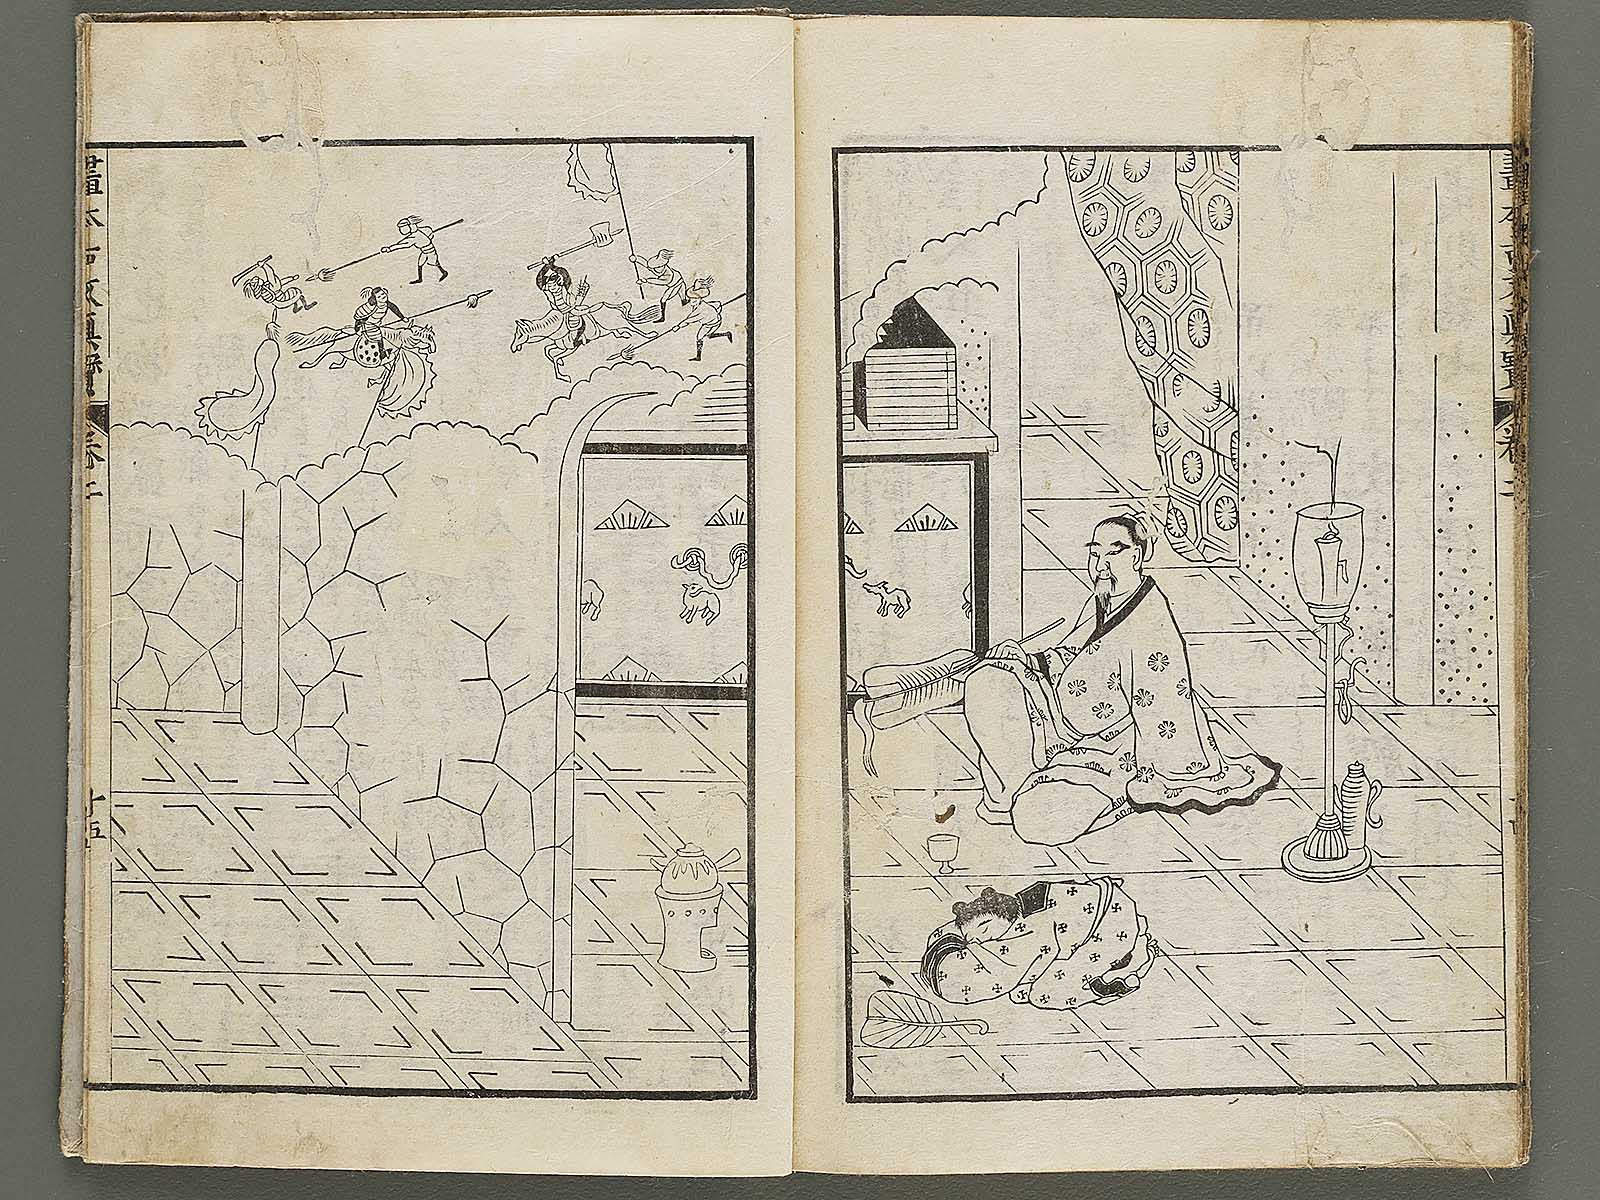 畫本古文眞寳
卷二
畫本古文眞寳
卷二
十五